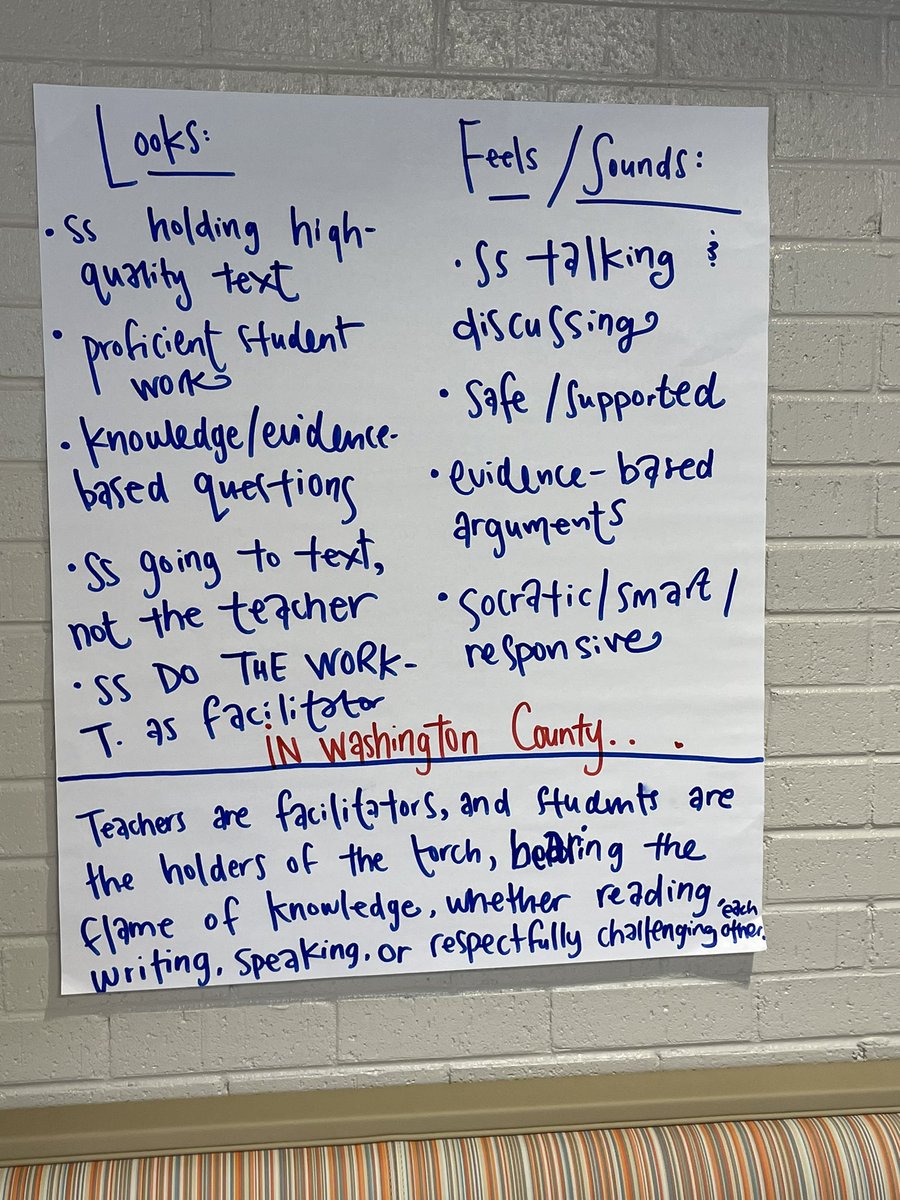 Looks:
• Ss holding high-
quality text
• proficient student
work
• knowledge/evidence-
based questions
• Ss going to text,
not the teacher
• SS DO THE WORK-
T. as facilitator
Feels / Sounds:
• Ss talking &
discussing
• safe / supported
• evidence-based
arguments
• socratic/smart/
responsive
IN Washington County...
Teachers are facilitators, and students are
the holders of the torch, bearing the
flame of knowledge, whether reading,
writing, speaking, or respectfully challenging each other.